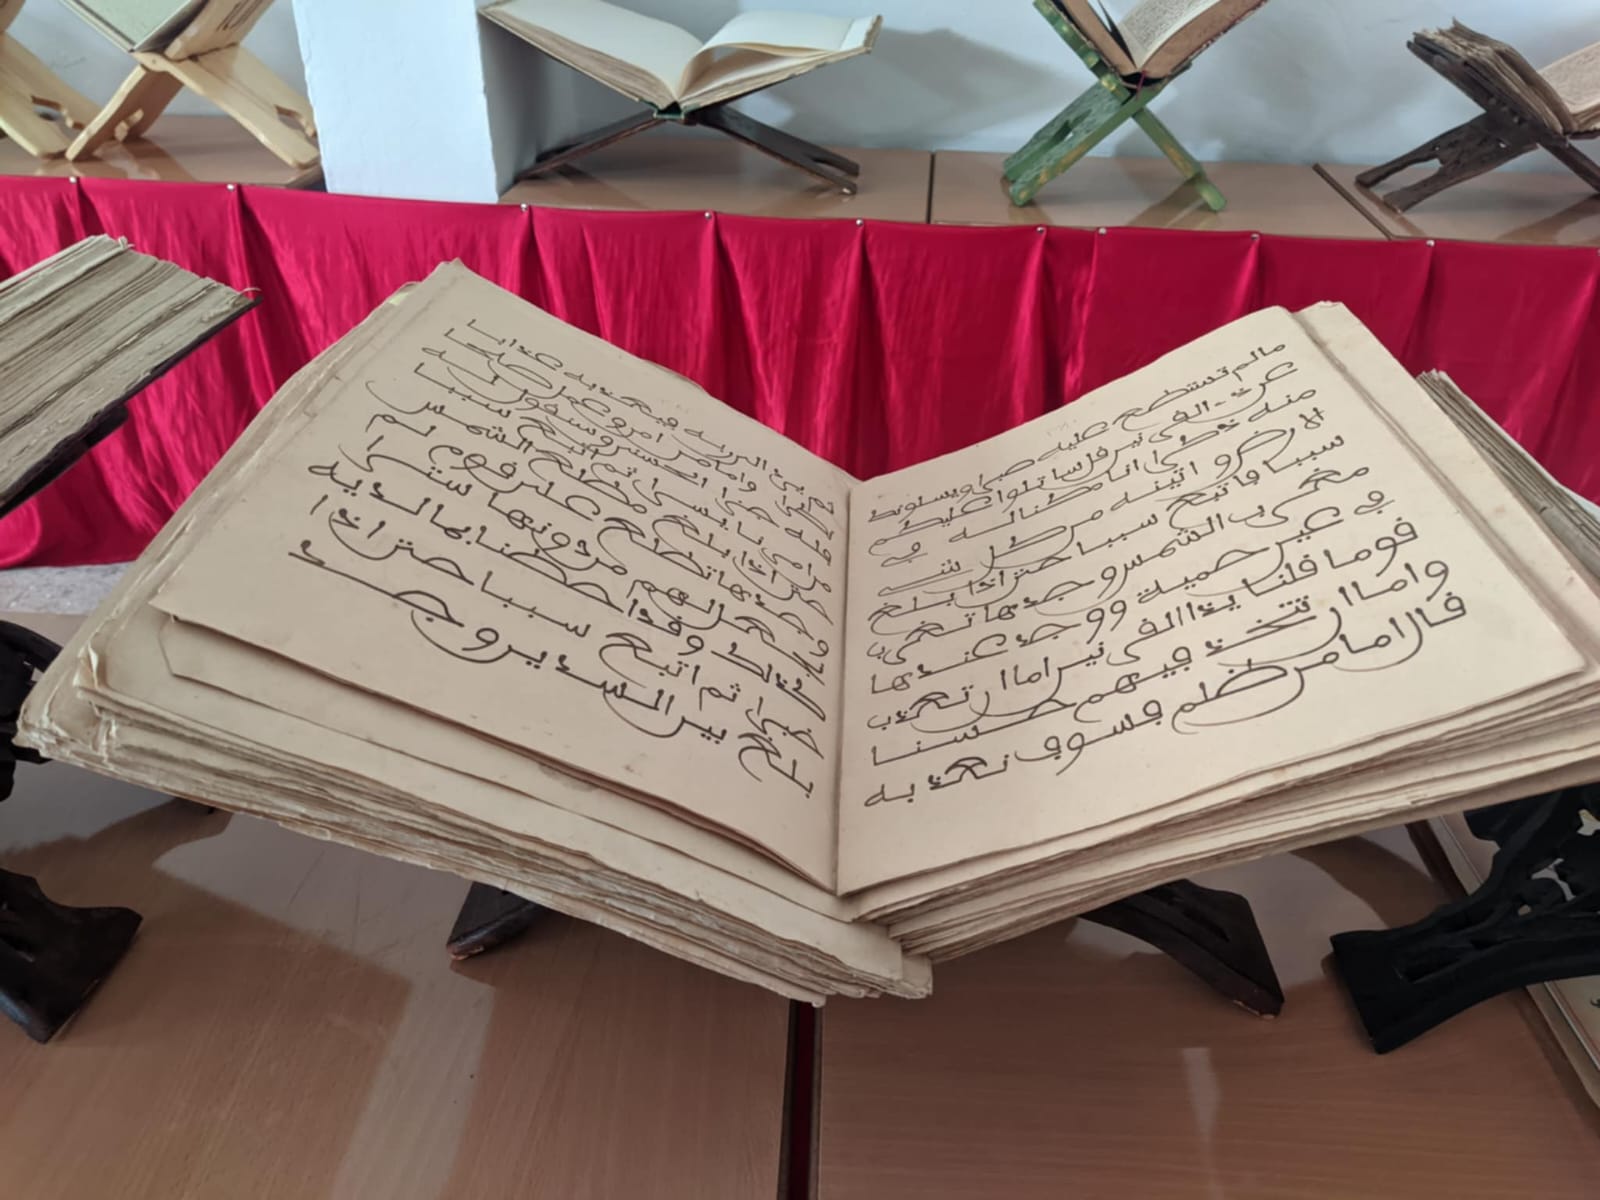 مالم تستطع عليه صبرا ويسلونك
عن ذي القرنين قل ساتلوا عليكم
منه ذكرا انا مكنا له في
الارض واتينه من كل شيء
سببا فاتبع سببا حتى اذا بلغ
مغرب الشمس وجدها تغرب
في عين حمية ووجد عندها
قوما قلنا يذا القرنين اما ان تعذب
واما ان تتخذ فيهم حسنا
قال اما من ظلم فسوف نعذبه
ثم يرد الى ربه فيعذبه عذابا
نكرا واما من امن وعمل صلحا
فله جزا الحسنى وسنقول له
من امرنا يسرا ثم اتبع سببا
حتى اذا بلغ مطلع الشمس
وجدها تطلع على قوم لم
نجعل لهم من دونها سترا
كذلك وقد احطنا بما لديه
خبرا ثم اتبع سببا حتى اذا
بلغ بين السدين وجد